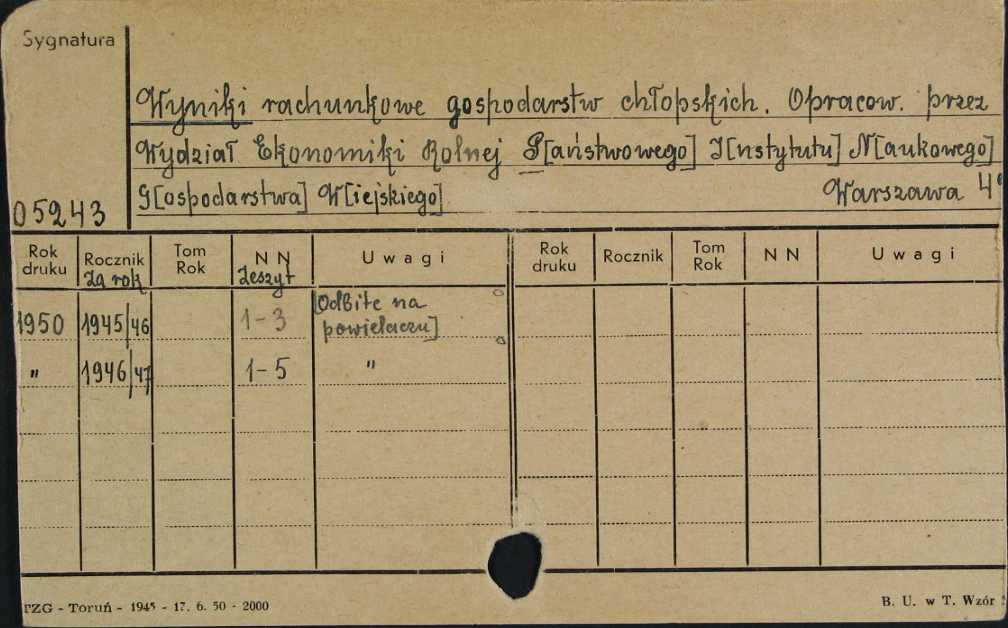 Sygnatura
Wyniki rachunkowe gospodarstw chłopskich. Opracow. przez
Wydział Ekonomiki Rolnej P[aństwowego] I[nstytutu] N[aukowego]
G[ospodarstwa] W[iejskiego] Warszawa 4°
05243
Rok druku Rocznik Za rok Tom Rok NN Zeszyt Uwagi Rok druku Rocznik Tom Rok NN Uwagi
1950 1945/46 1-3 [Odbite na
powielaczu]
" 1946/47 1-5 "
TZG - Toruń - 1945 - 17. 6. 50 - 2000
B. U. w T. Wzór